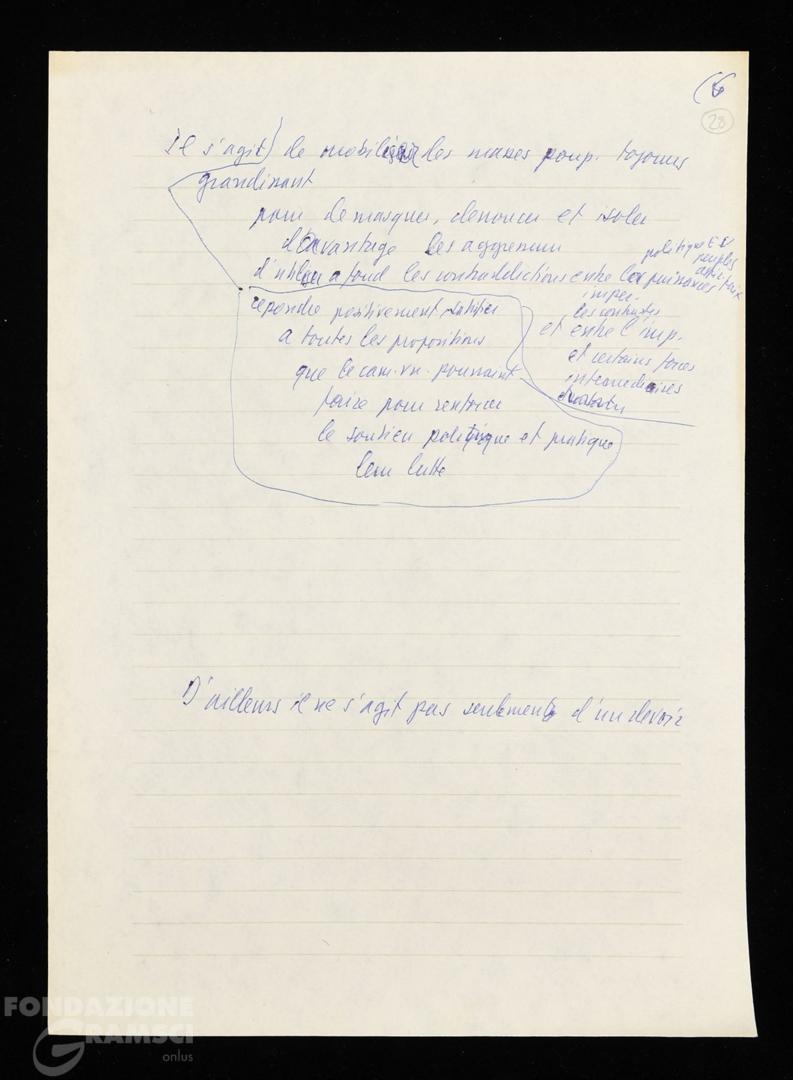 (6
28
Il s'agit) de mobiliser les masses poup. toujours
grandissant
pour demasquer, denoncer et isoler
davantage les aggresseurs
d'utiliser a fond les contraddictions entre les puissances
politique
peuples
imper.
les contrastes
et entre l'imp.
et certains forces
intermediaires
repondre positivement
a toutes les propositions
que le cam. vn. pourraient
faire pour renforcer
le soutien politique et pratique
leur lutte
D'ailleurs il ne s'agit pas seulement d'un devoir
FONDAZIONE
GRAMSCI
onlus